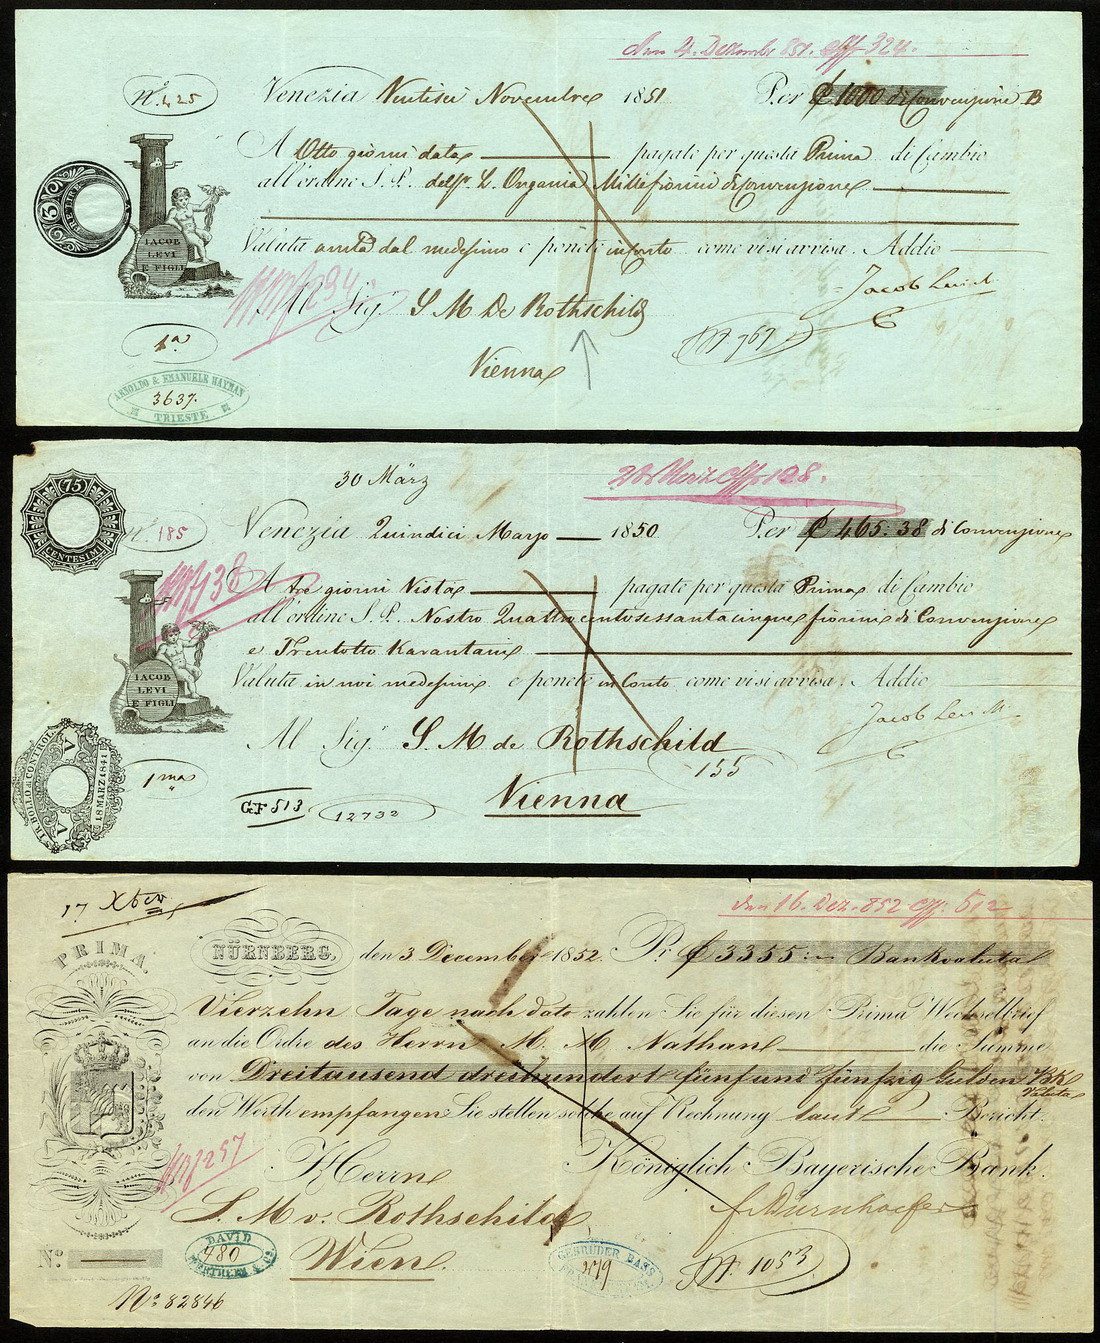 den 4. Dezember 851.
No. 425
Venezia Ventisei Novembre 1851
Per f 1000 di Convenzione
A Otto giorni data pagate per questa Prima di Cambio
all'ordine S.P. del Sr. L. Ongania Millefiorini di Convenzione
Valuta avuta dal medesimo e ponete in Conto come vi si avvisa. Addio
3
TRE LIRE
IACOB
LEVI
E FIGLI
Al Sigr. S M De Rothschild
Jacob Levi
Vienna
No 767
1a
ARNOLDO & EMANUELE HAYMAN
3637.
TRIESTE
30 März
75
CENTESIMI
No. 185
Venezia Quindici Marzo 1850.
Per f 465:38 di Convenzione
A tre giorni Vista pagate per questa Prima di Cambio
all'ordine S.P. Nostro Quattrocentosessantacinque fiorini di Convenzione
e Trentotto Karantani
Valuta in noi medesimi e ponete in Conto come vi si avvisa. Addio
IACOB
LEVI
E FIGLI
Al Sigr. S M de Rothschild
Jacob Levi
155
Vienna
1ma
BOLLO CONTROL
18 MARZ 1841
GF 513
12732
17 Xber
den 16. Dez. 852 512
PRIMA.
NÜRNBERG, den 3 December 1852. Pr. f 3355:- Bankvaluta
Vierzehn Tage nach dato zahlen Sie für diesen Prima Wechselbrief
an die Ordre des Herrn M. M. Nathan die Summe
von Dreitausend dreihundert fünfund fünfzig Gulden
Valuta
den Werth empfangen. Sie stellen solche auf Rechnung laut Bericht.
257
Herrn
Königlich Bayerische Bank.
S. M. v. Rothschild
DAVID
480
WERTHEIM & Co.
Wien.
GEBRUDER BASS
No. 1053
No.
No. 82846